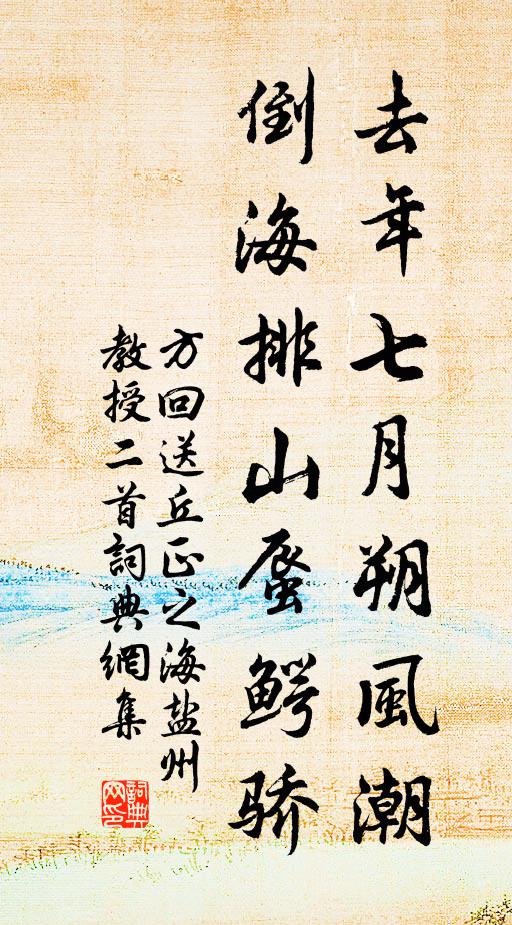 去年七月朔風潮
倒海排山蜃鳄骄
方回送丘正之海盐州
教授二首詞典網集
詞典网印